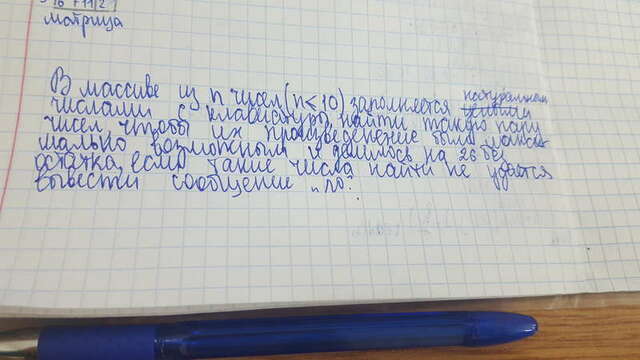 матрица
В массиве из n чисел (n≤10) заполняется натуральными
числами с клавиатуры, найти такую пару
чисел, чтобы их произведение было макси-
мально возможным и делилось на 26 без
остатка, если такие числа найти не удаётся
вывести сообщение „no".